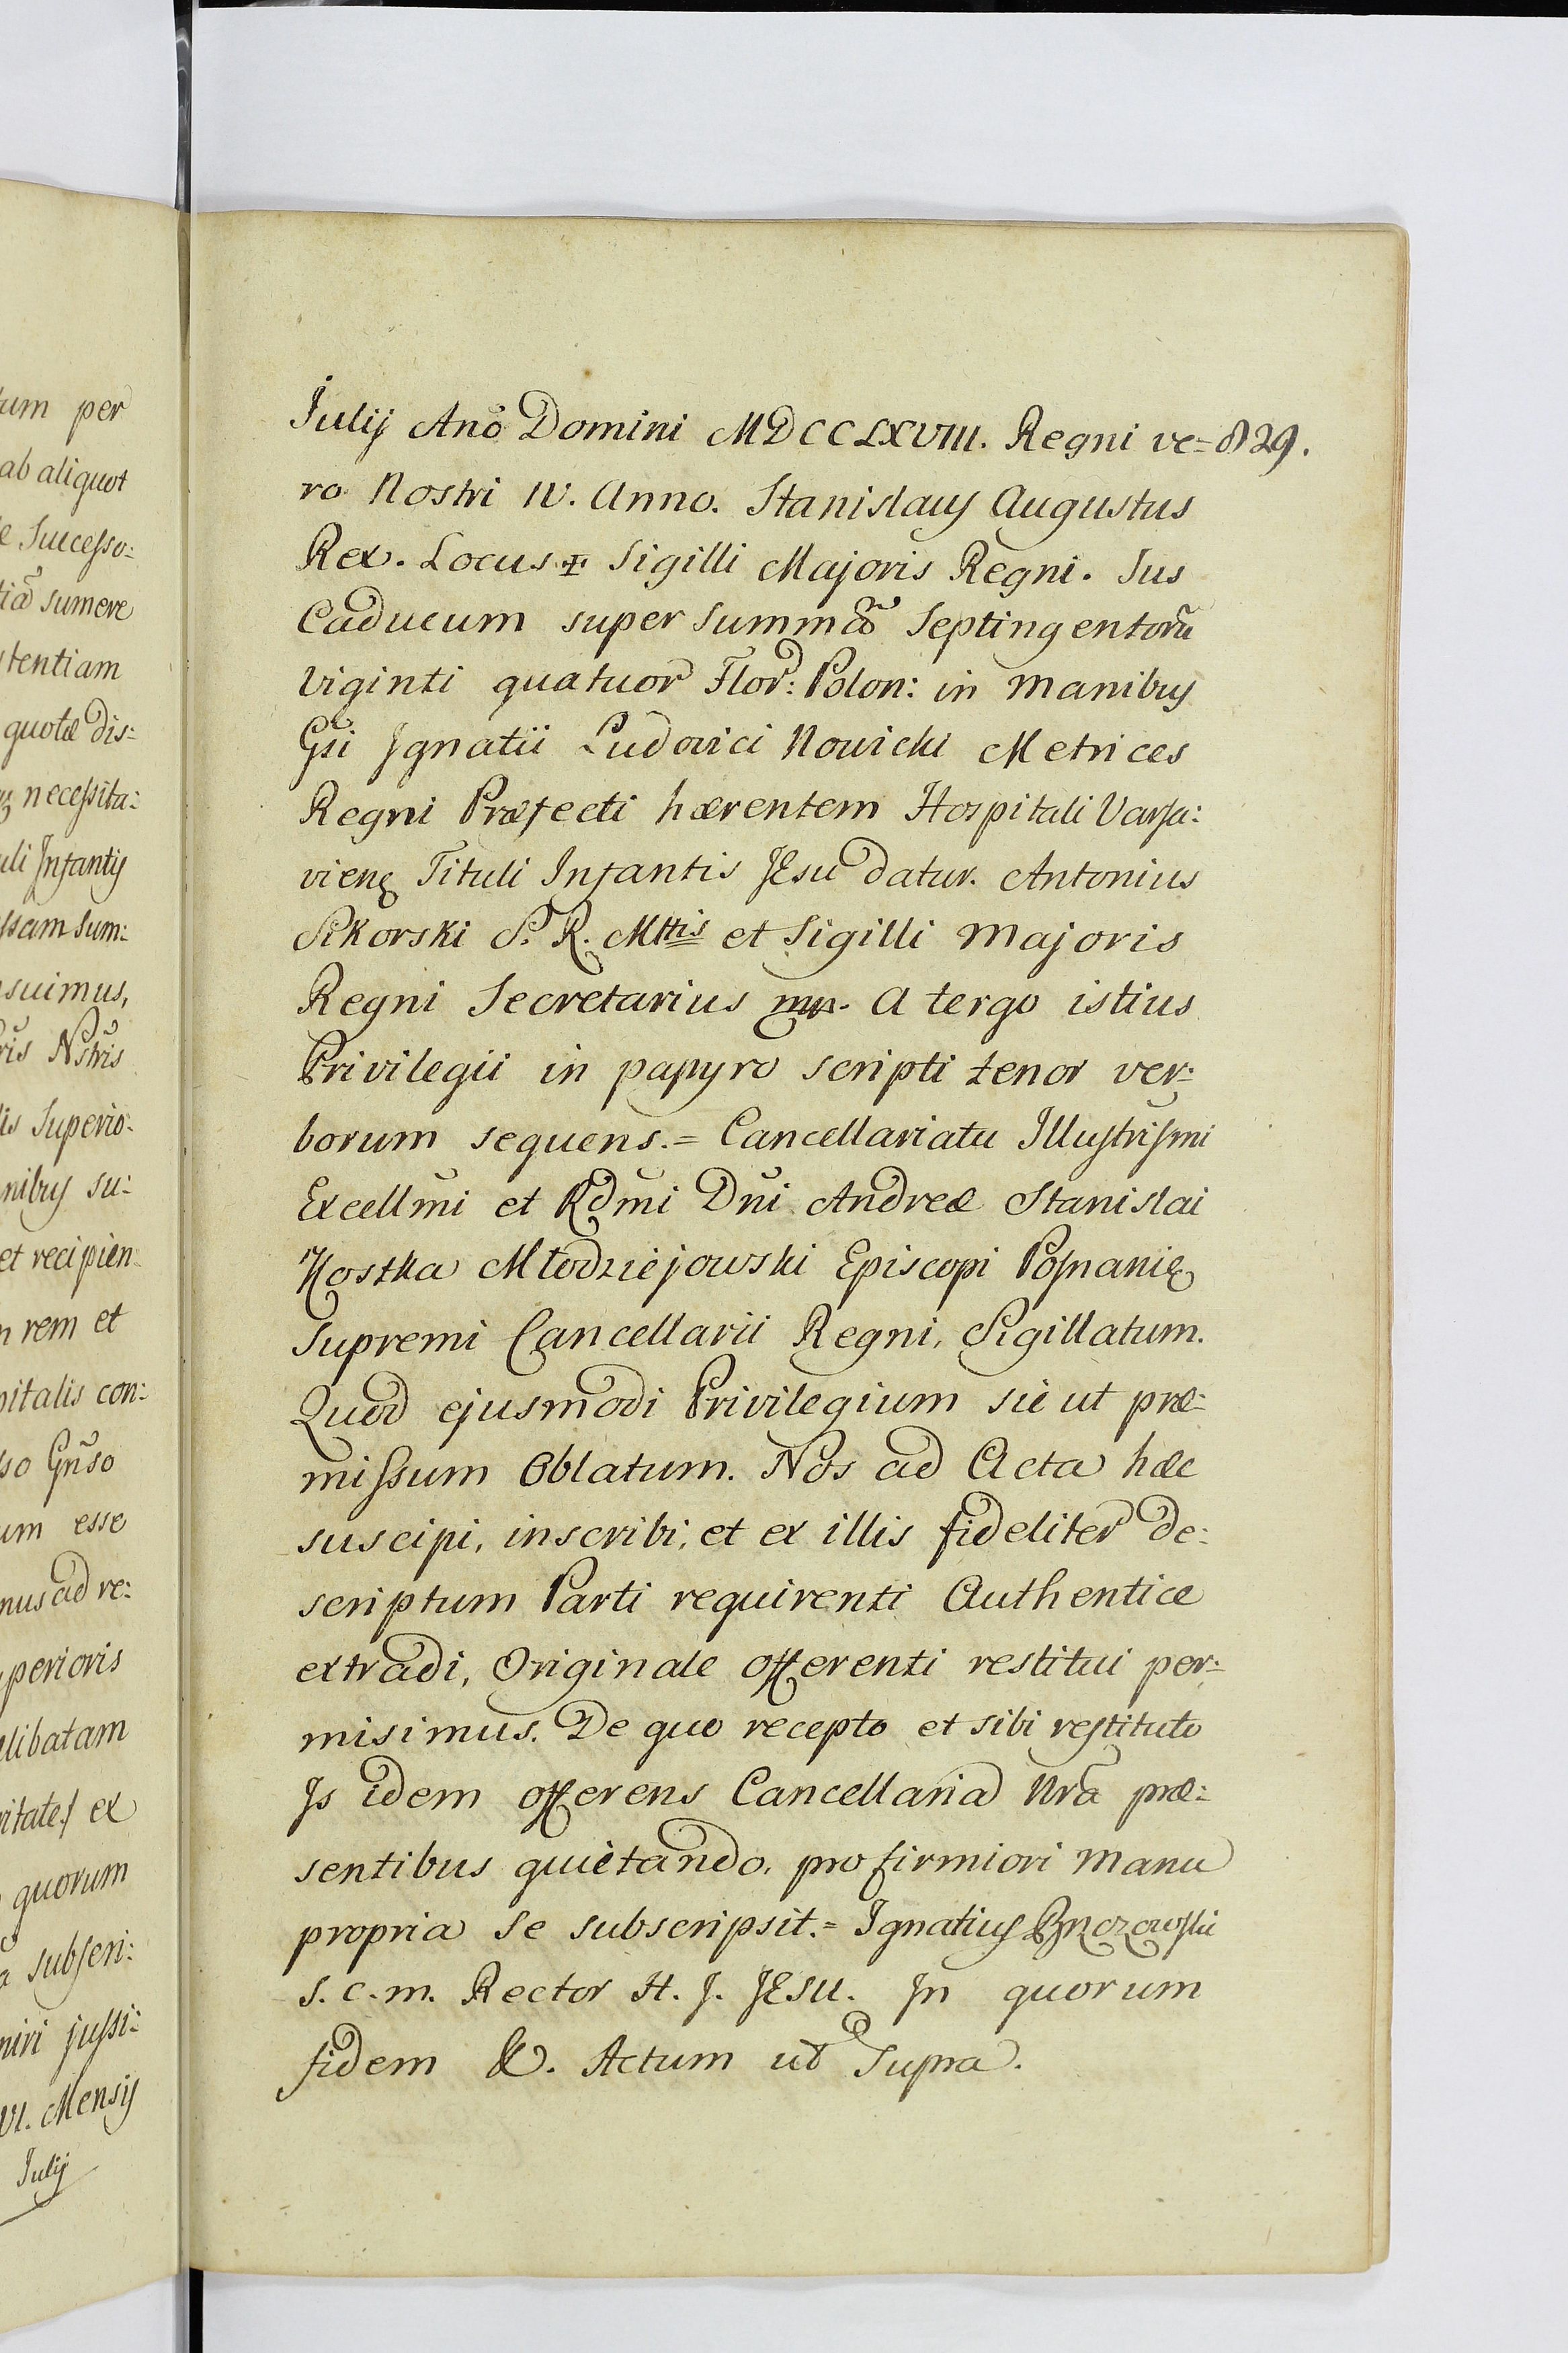 tum per
ab aliquot
e Successo:
tiã sumere
stentiam
quotæ dis:
necessita:
uli Infantis
ssam sum:
suimus,
ris Nstris
lis Superio:
nibus su:
et recipien
n rem et
pitalis con:
so Gñso
um esse
mus ad re:
periovis
elibatam
ritate/ ex
quorum
subscri:
niri jussi:
VI. Mensis
Julij
Julij Anõ Domini MDCCLXVIII. Regni ve= 829.
ro Nostri IV. Anno. Stanislaus Augustus
Rex. Locus ☩ Sigilli Majoris Regni. Jus
Caducum super Summã Septingentorũ
Viginti quatuor Flor: Polon: in manibus
Gsi Ignatii Ludovici Nowicki Metrices
Regni Præfecti hærentem Hospitali Varsa:
vieñ Tituli Infantis JEsu datur. Antonius
Sikorski S. R. Mttis et Sigilli majoris
Regni Secretarius mp. A tergo istius
Privilegii in papyro scripti tenor ver:
borum sequens.= Cancellariatu Illustrismi
Excellmi et Rdmi Dni Andreæ Stanislai
Kostka Młodziejowski Episcopi Posnanię
Supremi Cancellarii Regni, Sigillatum.
Quod ejusmodi Privilegium sic ut præ:
missum Oblatum. Nos ad Acta hæc
suscipi, inscribi, et ex illis fideliter de:
scriptum Parti requirenti Authentice
extradi, Originale offerenti restitui per:
misimus. De quo recepto et sibi restituto
Is idem offerens Cancellaria Nrã præ:
sentibus quiètando, pro firmiori manu
propria se subscripsit.= Ignatius Brzozowski
S. C. M. Rector H. J. JESU. In quorum
fidem &. Actum ut Supra.